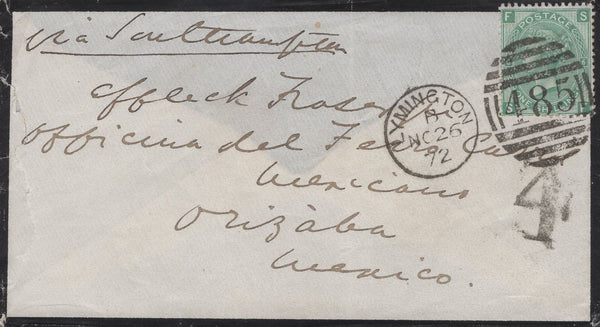 via Southampton
F S
POSTAGE
485
Affleck Fraser
LYMINGTON
A
NO 26
72
Officina del Ferro Car
Mexicano
Orizàba
Mexico.
4